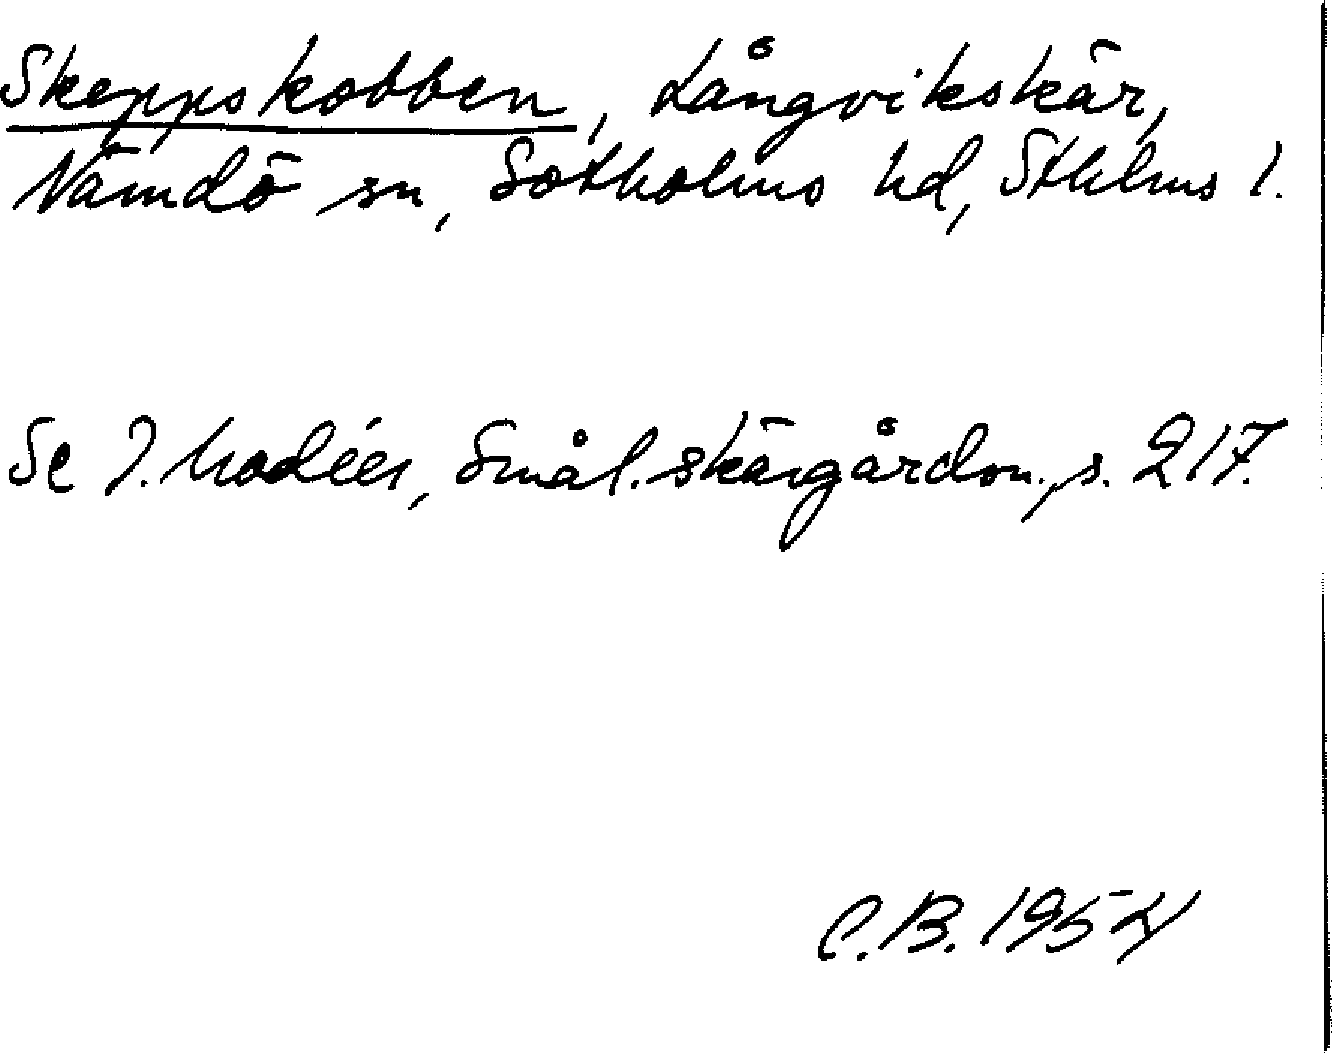 Skeppskobben, Långvikskär,
Nämdö sn, Sotholms hd, Sthlms l.
Se I. Modéer, Smål. skärgårdsn., s. 217.
C.B. 1954